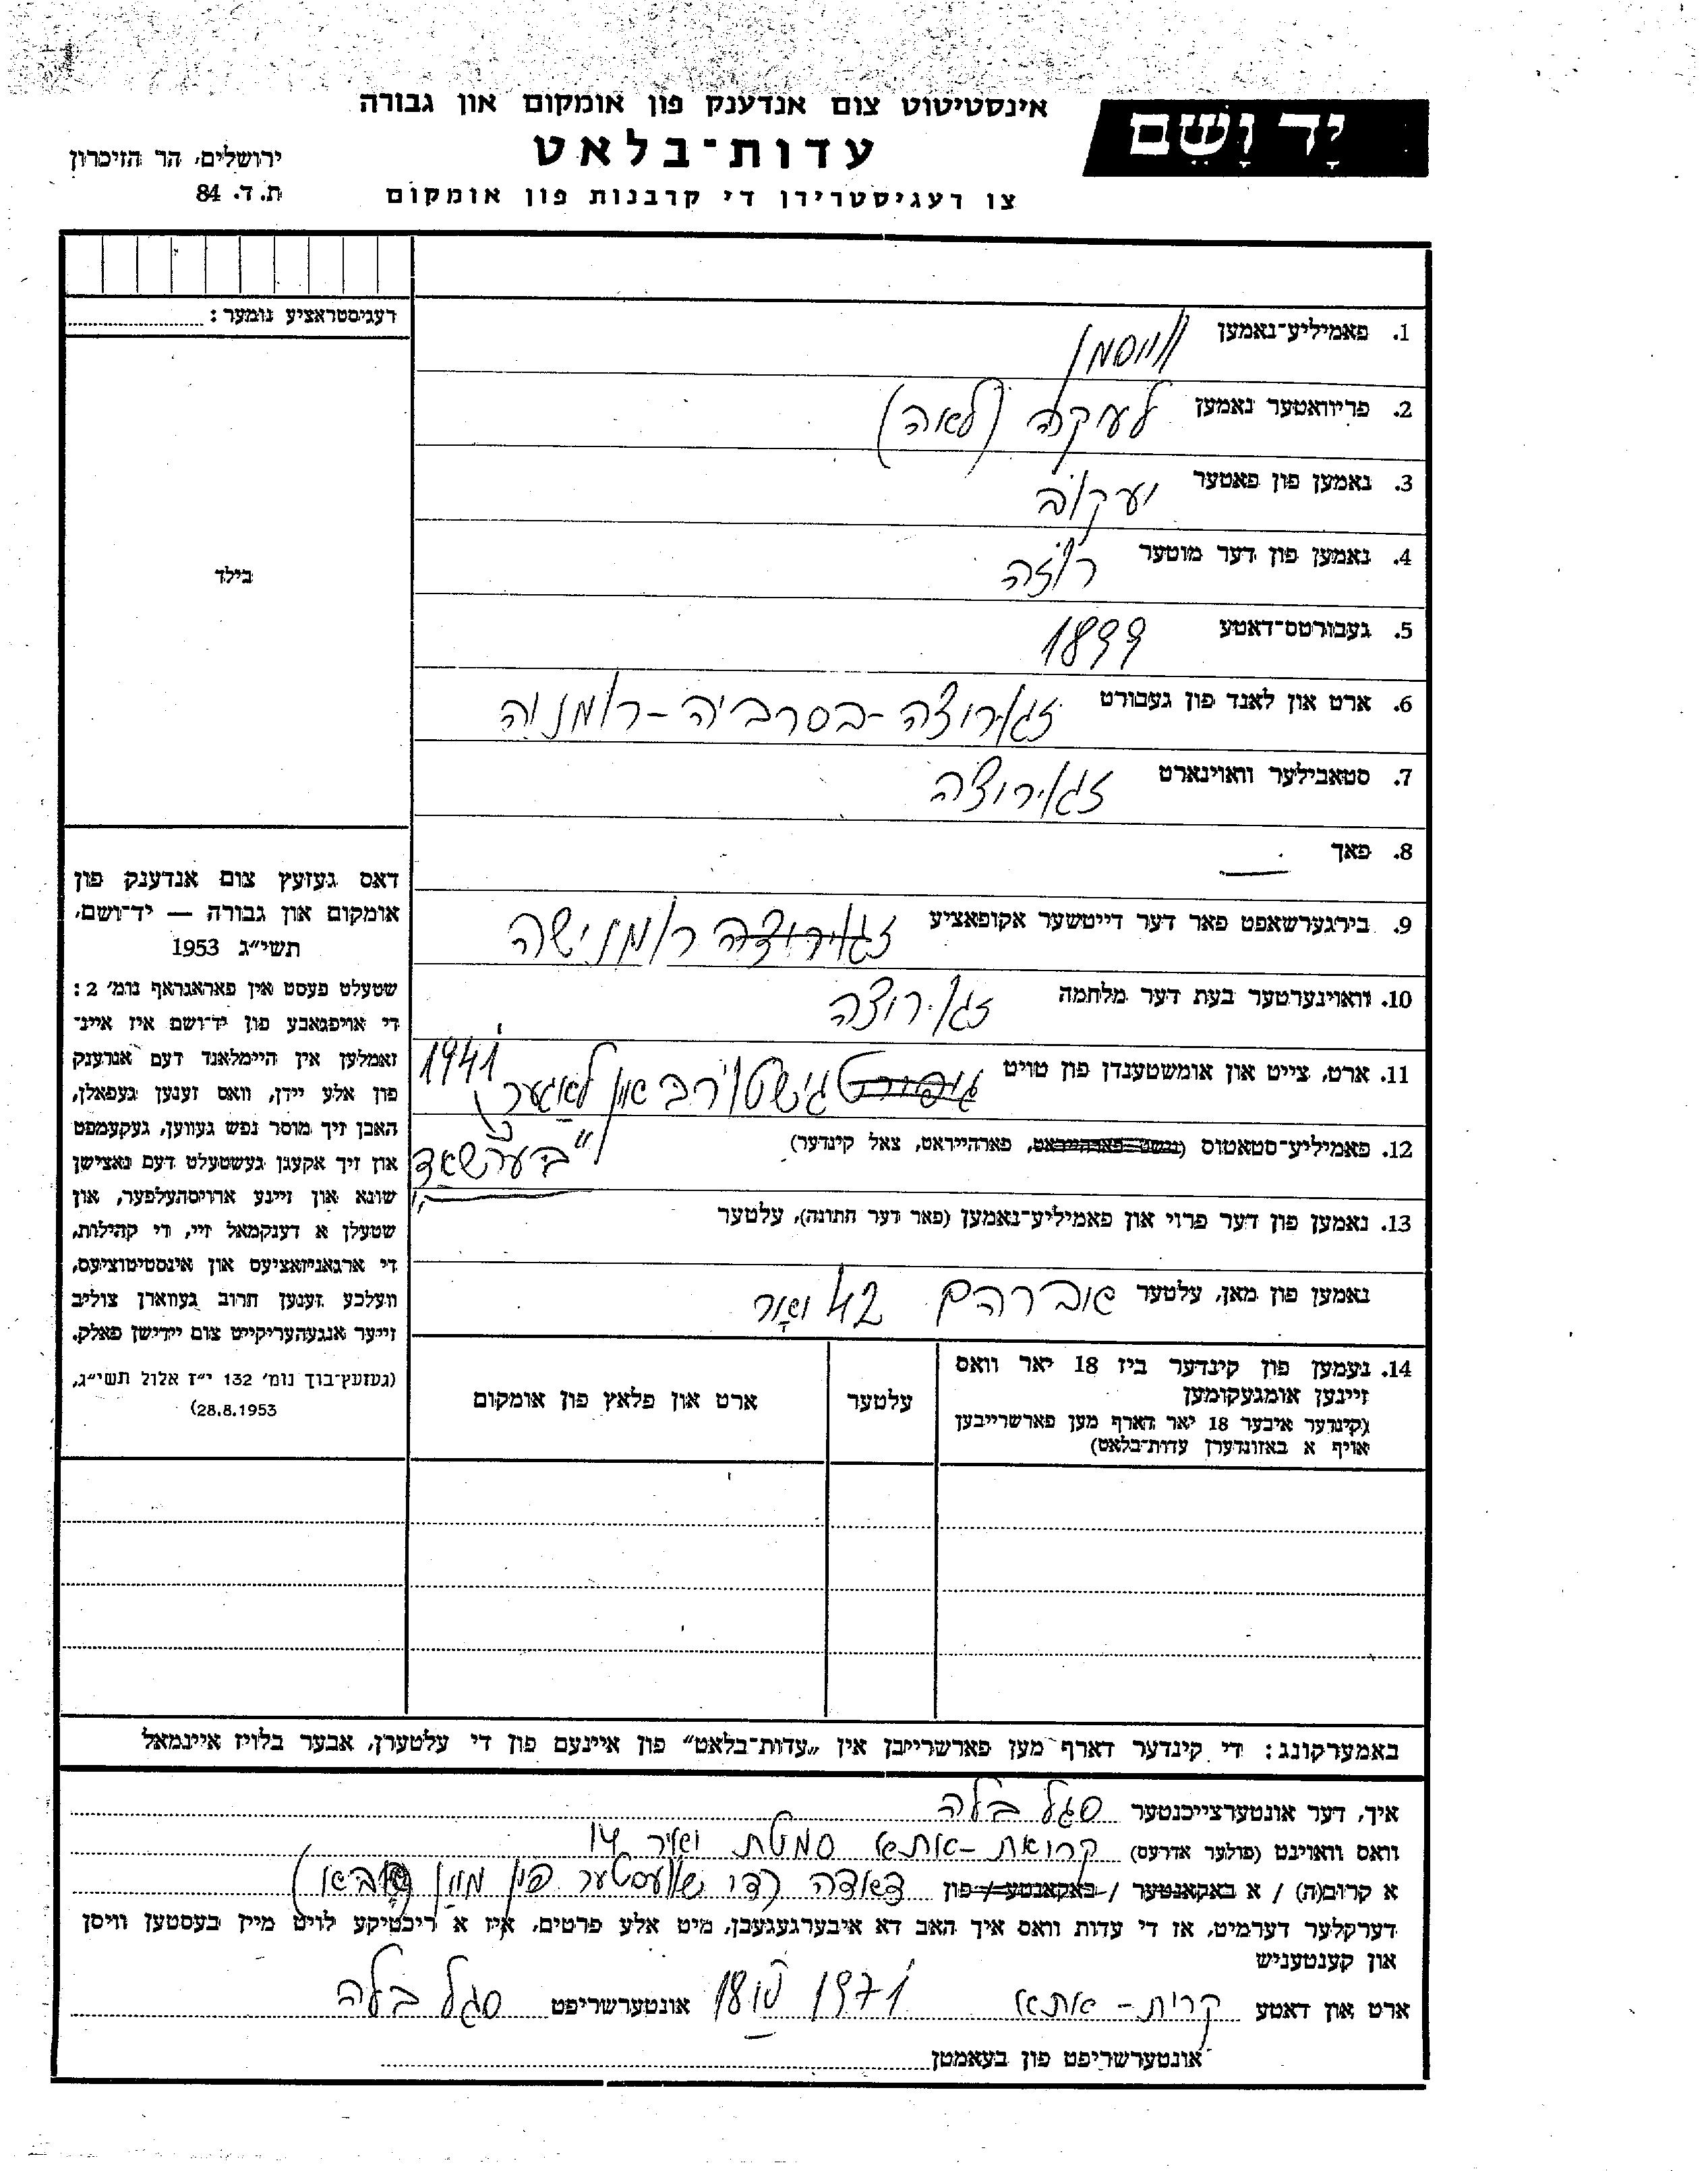 יָד וָשֵׁם
אינסטיטוט צום אנדענק פון אומקום און גבורה
עדות־בלאט
צו רעגיסטרירן די קרבנות פון אומקום
ירושלים, הר הזיכרון
ת. ד. 84
רעגיסטראציע נומער :
בילד
1. פאמיליע־נאמען ווייסמן
2. פריוואטער נאמען לעקה (לאה)
3. נאמען פון פאטער יעקוב
4. נאמען פון דער מוטער רוזה
5. געבורטס־דאטע 1899
6. ארט און לאנד פון געבורט זגוריצה - בסרביה - רומניה
7. סטאבילער וואוינארט זגוריצה
8. פאך —
9. בירגערשאפט פאר דער דייטשער אקופאציע זגוריצה רומנישה
10. וואוינערטער בעת דער מלחמה זגוריצה
11. ארט, צייט און אומשטענדן פון טויט גישטורב אין לאגער 1941
12. פאמיליע־סטאטוס (נישט־פארהייראט, פארהייראט, צאל קינדער) "בערשאד"
13. נאמען פון דער פרוי און פאמיליע־נאמען (פאר דער חתונה), עלטער
נאמען פון מאן, עלטער אברהם 42 יאָר
14. נעמען פון קינדער ביז 18 יאר וואס
זיינען אומגעקומען
(קינדער איבער 18 יאר דארף מען פארשרייבן
אויף א באזונדערן עדות־בלאט)
עלטער
ארט און פלאץ פון אומקום
דאס געזעץ צום אנדענק פון
אומקום און גבורה — יד־ושם,
תשי״ג 1953
שטעלט פעסט אין פאראגראף נומ׳ 2 :
די אויפגאבע פון יד־ושם איז איינ־
זאמלען אין היימלאנד דעם אנדענק
פון אלע יידן, וואס זענען געפאלן,
האבן זיך מוסר נפש געווען, געקעמפט
און זיך אקעגן געשטעלט דעם נאצישן
שונא און זיינע ארויסהעלפער, און
שטעלן א דענקמאל זיי, די קהילות,
די ארגאניזאציעס און אינסטיטוציעס,
וועלכע זענען חרוב געווארן צוליב
זייער אנגעהעריקייט צום יידישן פאלק.
(געזעץ־בוך נומ׳ 132 י״ז אלול תשי״ג,
28.8.1953)
באמערקונג : די קינדער דארף מען פארשרייבן אין „עדות־בלאט" פון איינעם פון די עלטערן, אבער בלויז איינמאל
איך, דער אונטערצייכנטער סגל בלה
וואס וואוינט (פולער אדרעס) קרית - אתא סמטת יאיר 14
א קרוב(ה) / א באקאנטער / באקאנטע / פון דאדה (די שוועסטער פין מיין באבא)
דערקלער דערמיט, אז די עדות וואס איך האב דא איבערגעגעבן, מיט אלע פרטים, איז א ריכטיקע לויט מיין בעסטען וויסן
און קענטעניש
ארט און דאטע קרית - אתא 1971 אונטערשריפט סגל בלה
אונטערשריפט פון בעאמטן